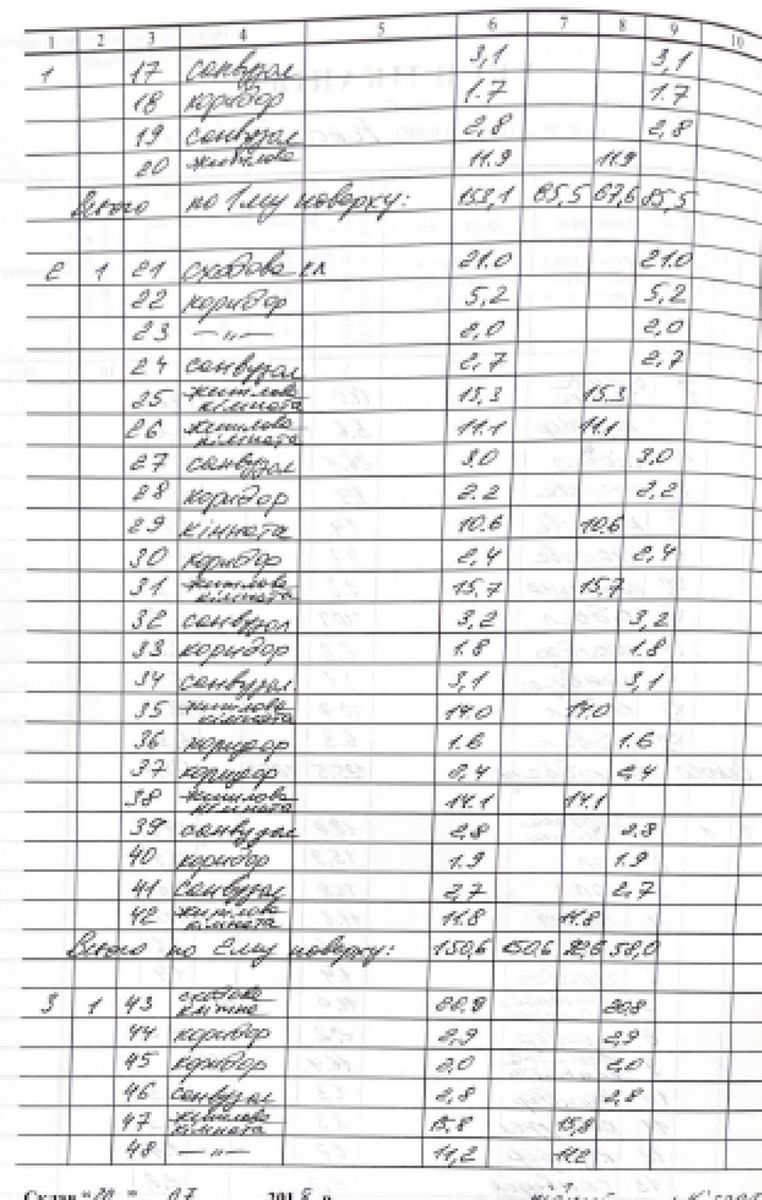 1 2 3 4 5 6 7 8 9 10
1 17 санвузол 3,1 3,1
18 коридор 1.7 1.7
19 санвузол 2,8 2,8
20 житлова 11.9 11.9
Всього по 1му поверху: 153,1 85,5 67,6 85,5
2 1 21 сходова кл 21.0 21.0
22 коридор 5,2 5,2
23 —„— 2,0 2,0
24 санвузол 2,7 2,7
25 житлова кімната 15,3 15.3
26 житлова кімната 11.1 11,1
27 санвузол 3,0 3,0
28 коридор 2,2 2,2
29 кімната 10.6 10,6
30 коридор 2,4 2,4
31 житлова кімната 15,7 15,7
32 санвузол 3,2 3,2
33 коридор 1.8 1.8
34 санвузол 3,1 3,1
35 житлова кімната 14.0 14.0
36 коридор 1.6 1.6
37 коридор 2,4 2,4
38 житлова кімната 14.1 14,1
39 санвузол 2,8 2,8
40 коридор 1.9 1.9
41 санвузол 2,7 2,7
42 житлова кімната 11.8 11.8
Всього по 2му поверху: 150,6 150,6 92,6 58,0
3 1 43 сходова клітина 20.8 20.8
44 коридор 2,9 2,9
45 коридор 2,0 2,0
46 санвузол 2,8 2,8
47 житлова кімната 15,8 15,8
48 —„— 11,2 11.2
07